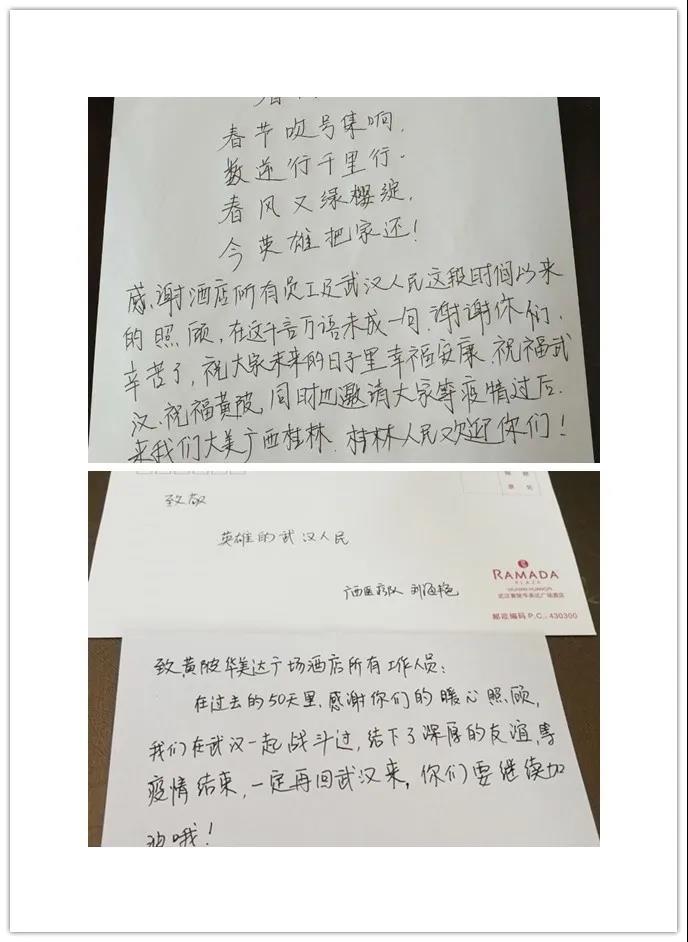 春节吹号集响,
数逆行千里行.
春风又绿樱绽,
今英雄把家还!
感谢酒店所有员工及武汉人民这段时间以来
的照顾,在这千言万语未成一句,谢谢你们,
辛苦了,祝大家未来的日子里幸福安康,祝福武
汉,祝福黄陂,同时也邀请大家等疫情过后,
来我们大美广西桂林.桂林人民欢迎你们!
致敬
英雄的武汉人民
广西医疗队 刘海艳
RAMADA
PLAZA
WUHAN HUANGPI
武汉黄陂华美达广场酒店
邮政编码 P.C.: 430300
致黄陂华美达广场酒店所有工作人员:
在过去的50天里,感谢你们的暖心照顾,
我们在武汉一起战斗过,结下了深厚的友谊,等
疫情结束,一定再回武汉来,你们要继续加
油哦!